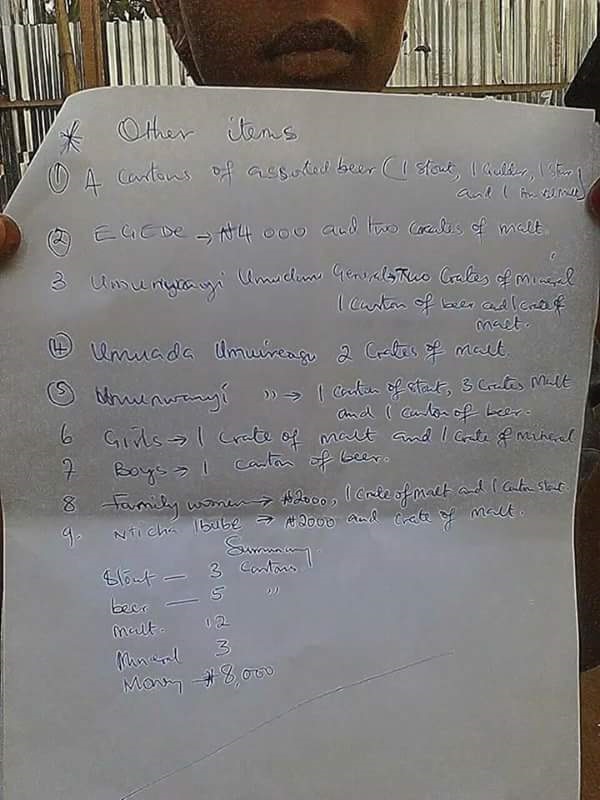 * Other items
① A cartons of assorted beer (1 stout, 1 Gulder, 1 Star
and 1
② EGEDE → ₦4000 and two Crates of malt.
3 Umunwanyi General → Two Crates of Mineral
1 Carton of beer and 1 crate of
malt.
④ Umuada 2 Crates of malt.
⑤ Umunwanyi " → 1 carton of stout, 3 Crates Malt
and 1 Carton of beer.
6 Girls → 1 Crate of malt and 1 Crate of Mineral
7 Boys → 1 carton of beer.
8 Family women → ₦2000, 1 Crate of Malt and 1 Carton stout.
9. Nticha Ibube → ₦2000 and Crate of Malt.
Summary.
Stout — 3 Cartons
beer — 5 "
Malt. 12
Mineral 3
Money → ₦8,000